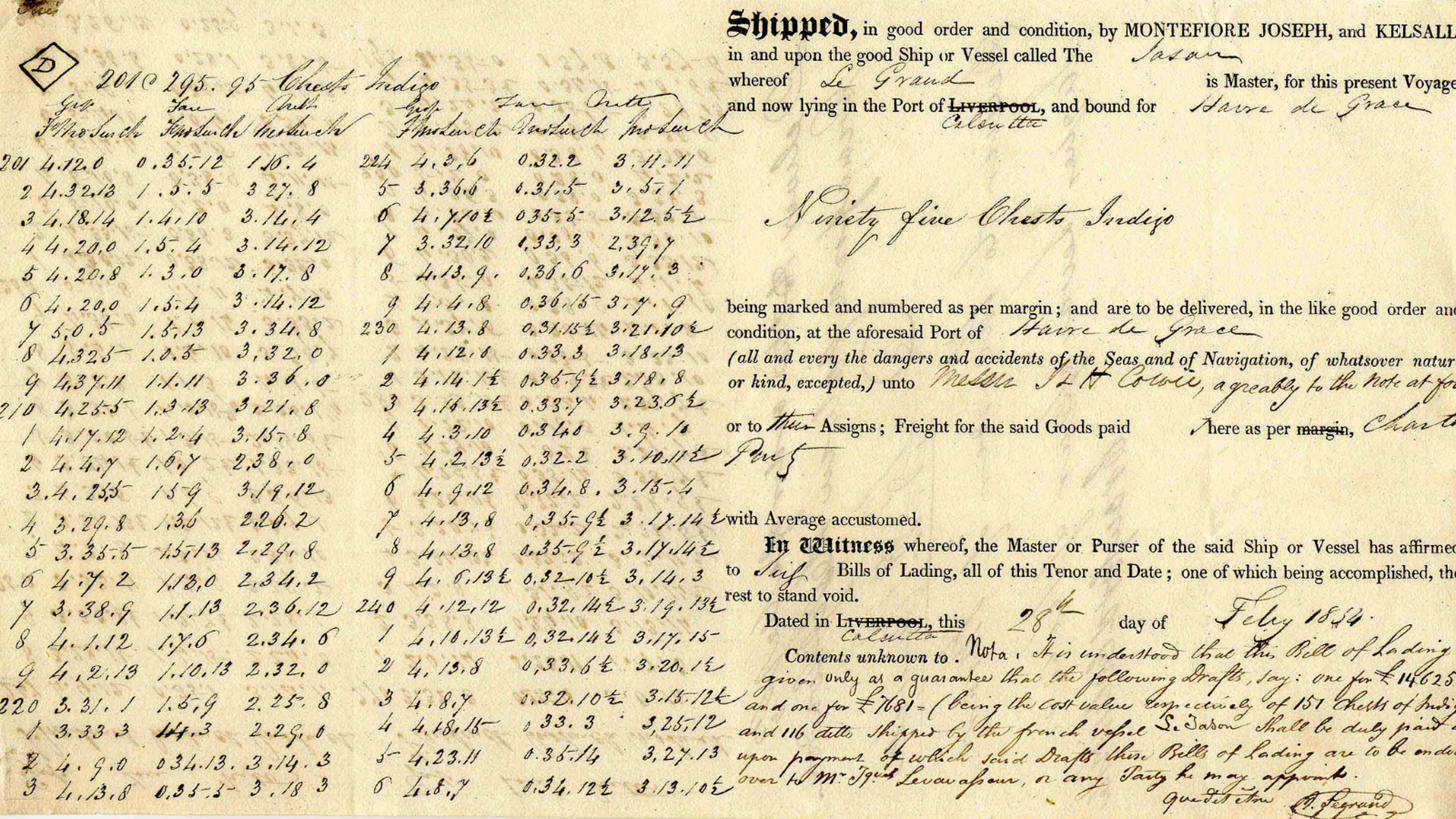 D
201 @ 295. 95 Chests Indigo
Gross Tare Nett Gross Tare Netty
201 4.12.0 0.35.12 1.16.4 224 4.3.6 0.32.2 3.11.11
2 4.32.13 1.5.5 3.27.8 5 3.36.6 0.31.5 3.5.1
3 4.18.14 1.4.10 3.14.4 6 4.7.10½ 0.35.5 3.12.5½
4 4.20.0 1.5.4 3.14.12 7 3.32.10 0.33.3 2.39.7
5 4.20.8 1.3.0 3.17.8 8 4.13.9. 0.36.6 3.17.3
6 4.20.0 1.5.4 3.14.12 9 4.4.8 0.36.15 3.7.9
7 5.0.5 1.5.13 3.34.8 230 4.13.8 0.31.15½ 3.21.10½
8 4.32.5 1.0.5 3.32.0 1 4.12.0 0.33.3 3.18.13
9 4.37.11 1.1.11 3.36.0 2 4.14.1½ 0.35.9½ 3.18.8
210 4.25.5 1.3.13 3.21.8 3 4.16.13½ 0.33.7 3.23.6½
1 4.17.12 1.2.4 3.15.8 4 4.3.10 0.34.0 3.9.10
2 4.4.7 1.6.7 2.38.0 5 4.2.13½ 0.32.2 3.10.11½
3 4.25.5 1.5.9 3.19.12 6 4.9.12 0.34.8. 3.15.4
4 3.29.8 1.3.6 2.26.2 7 4.13.8 0.35.9½ 3.17.14½
5 3.35.5 1.5.13 2.29.8 8 4.13.8 0.35.9½ 3.17.14½
6 4.7.2 1.13.0 2.34.2 9 4.6.13½ 0.32.10½ 3.14.3
7 3.38.9 1.1.13 2.36.12 240 4.12.12 0.32.14½ 3.19.13½
8 4.1.12 1.7.6 2.34.6 1 4.10.13½ 0.32.14½ 3.17.15
9 4.2.13 1.10.13 2.32.0 2 4.13.8 0.33.6½ 3.20.1½
220 3.31.1 1.5.9 2.25.8 3 4.8.7 0.32.10½ 3.15.12½
1 3.33.3 1.4.3 2.29.0 4 4.18.15 0.33.3 3.25.12
2 4.9.0 0.34.13. 3.14.3 5 4.23.11 0.35.14 3.27.13
3 4.13.8 0.35.5 3.18.3 6 4.8.7 0.34.12½ 3.13.10½
Shipped, in good order and condition, by MONTEFIORE JOSEPH, and KELSALL
in and upon the good Ship or Vessel called The Jason
whereof Le Grand is Master, for this present Voyage
and now lying in the Port of LIVERPOOL, and bound for Havre de Grace
Calcutta
Ninety five Chests Indigo
being marked and numbered as per margin; and are to be delivered, in the like good order and
condition, at the aforesaid Port of Havre de Grace
(all and every the dangers and accidents of the Seas and of Navigation, of whatsover natur
or kind, excepted,) unto Messrs J & H Cowie, agreably to the Note at foo
or to their Assigns; Freight for the said Goods paid here as per margin, Charte
Party
with Average accustomed.
In Witness whereof, the Master or Purser of the said Ship or Vessel has affirmed
to Bills of Lading, all of this Tenor and Date; one of which being accomplished, the
rest to stand void.
Dated in LIVERPOOL, this 28th day of Feby 1834.
Calcutta
Contents unknown to. Nota. It is understood that this Bill of Lading
given only as a guarantee that the following Drafts, say: one for £14625
and one for £7681 = (being the cost value respecively of 151 Chests of Indig
and 116 ditto shipped by the french vessel Le Jason shall be duly paid
upon payment of which said Drafts these Bills of Lading are to be endo
over to Mr Jques Levavasseur, or any Party he may appoint.
que dit être A. Legrand